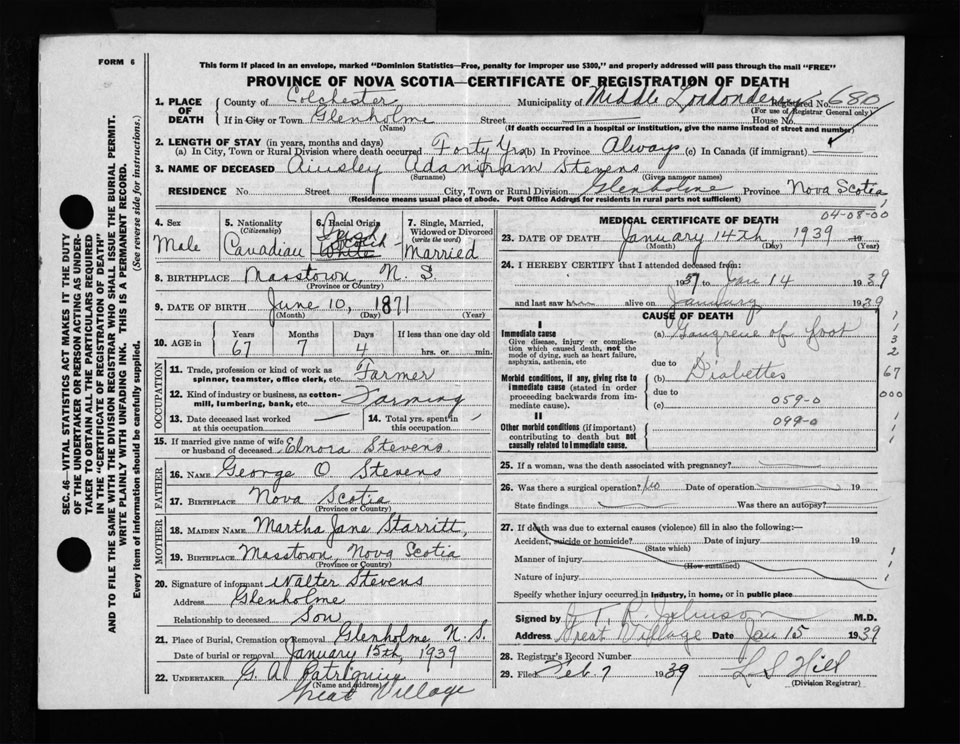 FORM 6
This form if placed in an envelope, marked "Dominion Statistics—Free, penalty for improper use $300," and properly addressed will pass through the mail "FREE"
PROVINCE OF NOVA SCOTIA—CERTIFICATE OF REGISTRATION OF DEATH
1. PLACE OF DEATH
County of Colchester Municipality of Middle Londonderry Registered No. 680
(For use of Registrar General only)
If in City or Town Glenholme Street House No.
(Name) (If death occurred in a hospital or institution, give the name instead of street and number)
2. LENGTH OF STAY (in years, months and days)
(a) In City, Town or Rural Division where death occurred Forty Yrs (b) In Province Always (c) In Canada (if immigrant)
3. NAME OF DECEASED Ainsley Stevens
(Surname) (Given name or names)
RESIDENCE No. Street City, Town or Rural Division Glenholme Province Nova Scotia
(Residence means usual place of abode. Post Office Address for residents in rural parts not sufficient)
04-08-00
4. Sex Male
5. Nationality (Citizenship) Canadian
6. Racial Origin White
7. Single, Married, Widowed or Divorced (write the word) Married
8. BIRTHPLACE Masstown, N. S.
(Province or Country)
9. DATE OF BIRTH June 10, 1871
(Month) (Day) (Year)
10. AGE in Years Months Days If less than one day old
67 7 4 hrs. or min.
OCCUPATION
11. Trade, profession or kind of work as spinner, teamster, office clerk, etc. Farmer
12. Kind of industry or business, as cotton-mill, lumbering, bank, etc. Farming
13. Date deceased last worked at this occupation
14. Total yrs. spent in this occupation
15. If married give name of wife or husband of deceased Elnora Stevens
FATHER
16. NAME George O Stevens
17. BIRTHPLACE Nova Scotia
(Province or Country)
MOTHER
18. MAIDEN NAME Martha Jane Starritt,
19. BIRTHPLACE Masstown, Nova Scotia
(Province or Country)
20. Signature of informant Walter Stevens
Address Glenholme
Relationship to deceased Son
21. Place of Burial, Cremation or Removal Glenholme N. S.
Date of burial or removal January 15th, 1939
22. UNDERTAKER G. A. Patriquin
(Name and address)
Great Village
MEDICAL CERTIFICATE OF DEATH
23. DATE OF DEATH January 14th 1939 19
(Month) (Day) (Year)
24. I HEREBY CERTIFY that I attended deceased from
1937 to Jan 14 1939
and last saw h alive on January 1939
CAUSE OF DEATH
I
Immediate cause
Give disease, injury or complication which caused death, not the mode of dying, such as heart failure, asphyxia, asthenia, etc
(a) Gangrene of foot
due to
Morbid conditions, if any, giving rise to immediate cause (stated in order proceeding backwards from immediate cause).
(b) Diabettes
due to
(c) 059-0
099-0
II
Other morbid conditions (if important) contributing to death but not causally related to immediate cause.
1
1
3
2
67
000
25. If a woman, was the death associated with pregnancy?
26. Was there a surgical operation? No Date of operation 19
State findings Was there an autopsy?
27. If death was due to external causes (violence) fill in also the following:—
Accident, suicide or homicide? Date of injury 19
(State which)
Manner of injury
(How sustained)
Nature of injury
Specify whether injury occurred in Industry, in home, or in public place
Signed by T. R. Johnson M.D.
Address Great Village Date Jan 15 1939
28. Registrar's Record Number
29. Filed Feb. 7 1939 L S Hill
(Division Registrar)
SEC. 46—VITAL STATISTICS ACT MAKES IT THE DUTY OF THE UNDERTAKER OR PERSON ACTING AS UNDERTAKER TO OBTAIN ALL THE PARTICULARS REQUIRED IN THE "CERTIFICATE OF REGISTRATION OF DEATH" AND TO FILE THE SAME WITH THE DIVISION REGISTRAR WHO SHALL ISSUE THE BURIAL PERMIT.
WRITE PLAINLY WITH UNFADING INK. THIS IS A PERMANENT RECORD.
Every item of information should be carefully supplied. (See reverse side for instructions.)